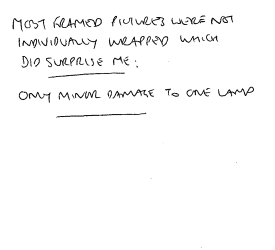 MOST FRAMED PICTURES WERE NOT
INDIVIDUALLY WRAPPED WHICH
DID SURPRISE ME:
ONLY MINOR DAMAGE TO ONE LAMP